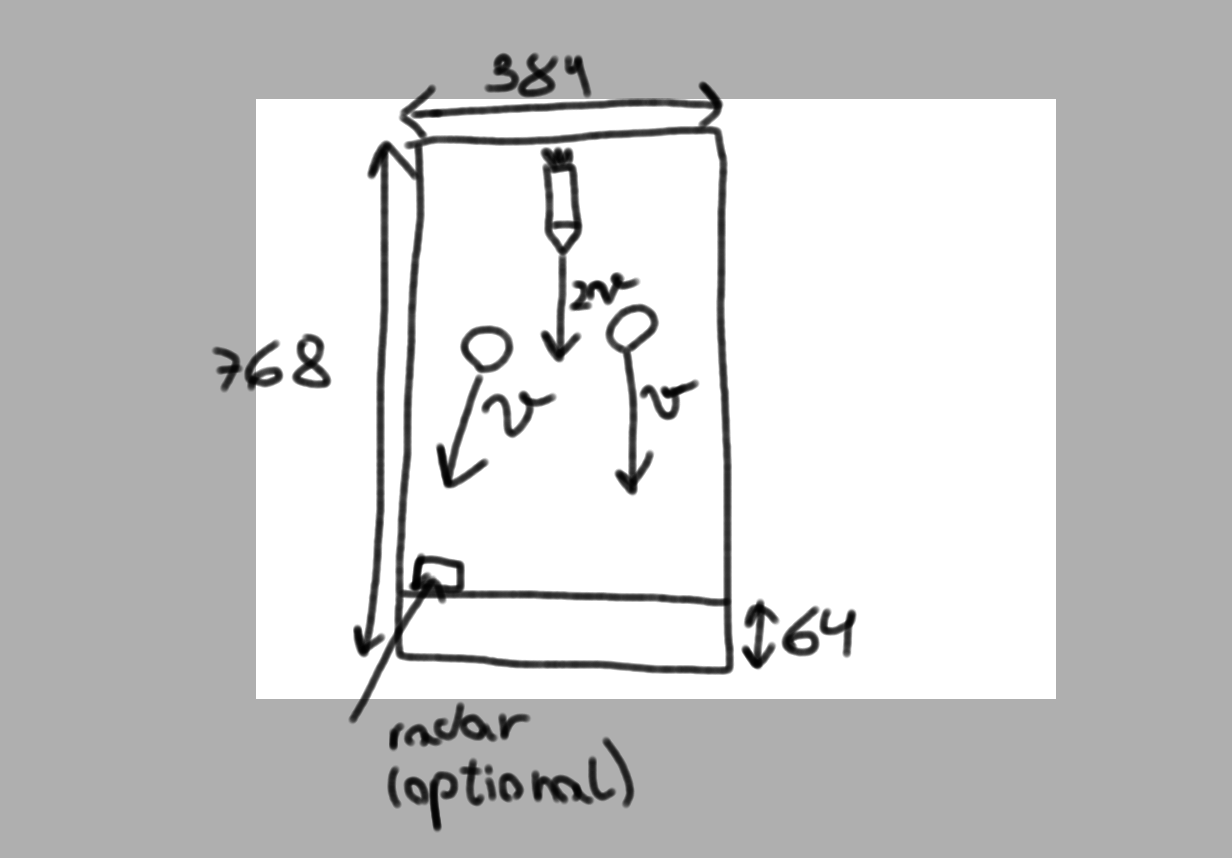 384
2v
768
v
v
64
radar
(optional)